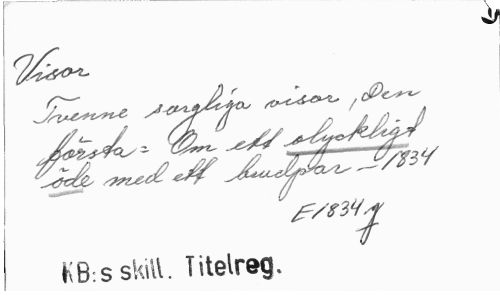 Visor
Tvenne sorgliga visor, Den
första = Om ett olyckligt
öde med ett brudpar – 1834
E1834g
KB:s skill. Titelreg.